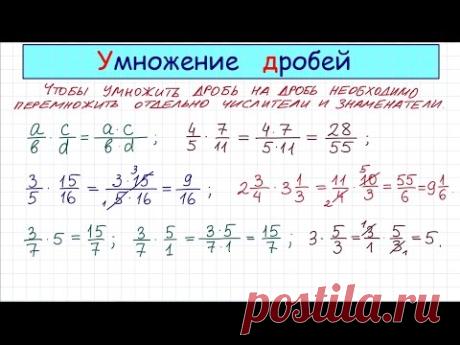 Умножение дробей
Чтобы умножить дробь на дробь необходимо
перемножить отдельно числители и знаменатели.
a/в · c/d = a·c/в·d ; 4/5 · 7/11 = 4·7/5·11 = 28/55 ;
3/5 · 15/16 = 3·15³/₁5·16 = 9/16 ; 2 3/4 · 3 1/3 = 11/₂4 · 10⁵/3 = 55/6 = 9 1/6 .
3/7 · 5 = 15/7 ; 3/7 · 5/1 = 3·5/7·1 = 15/7 ; 3 · 5/3 = 3¹/1 · 5/3₁ = 5.
POSTILA.RU